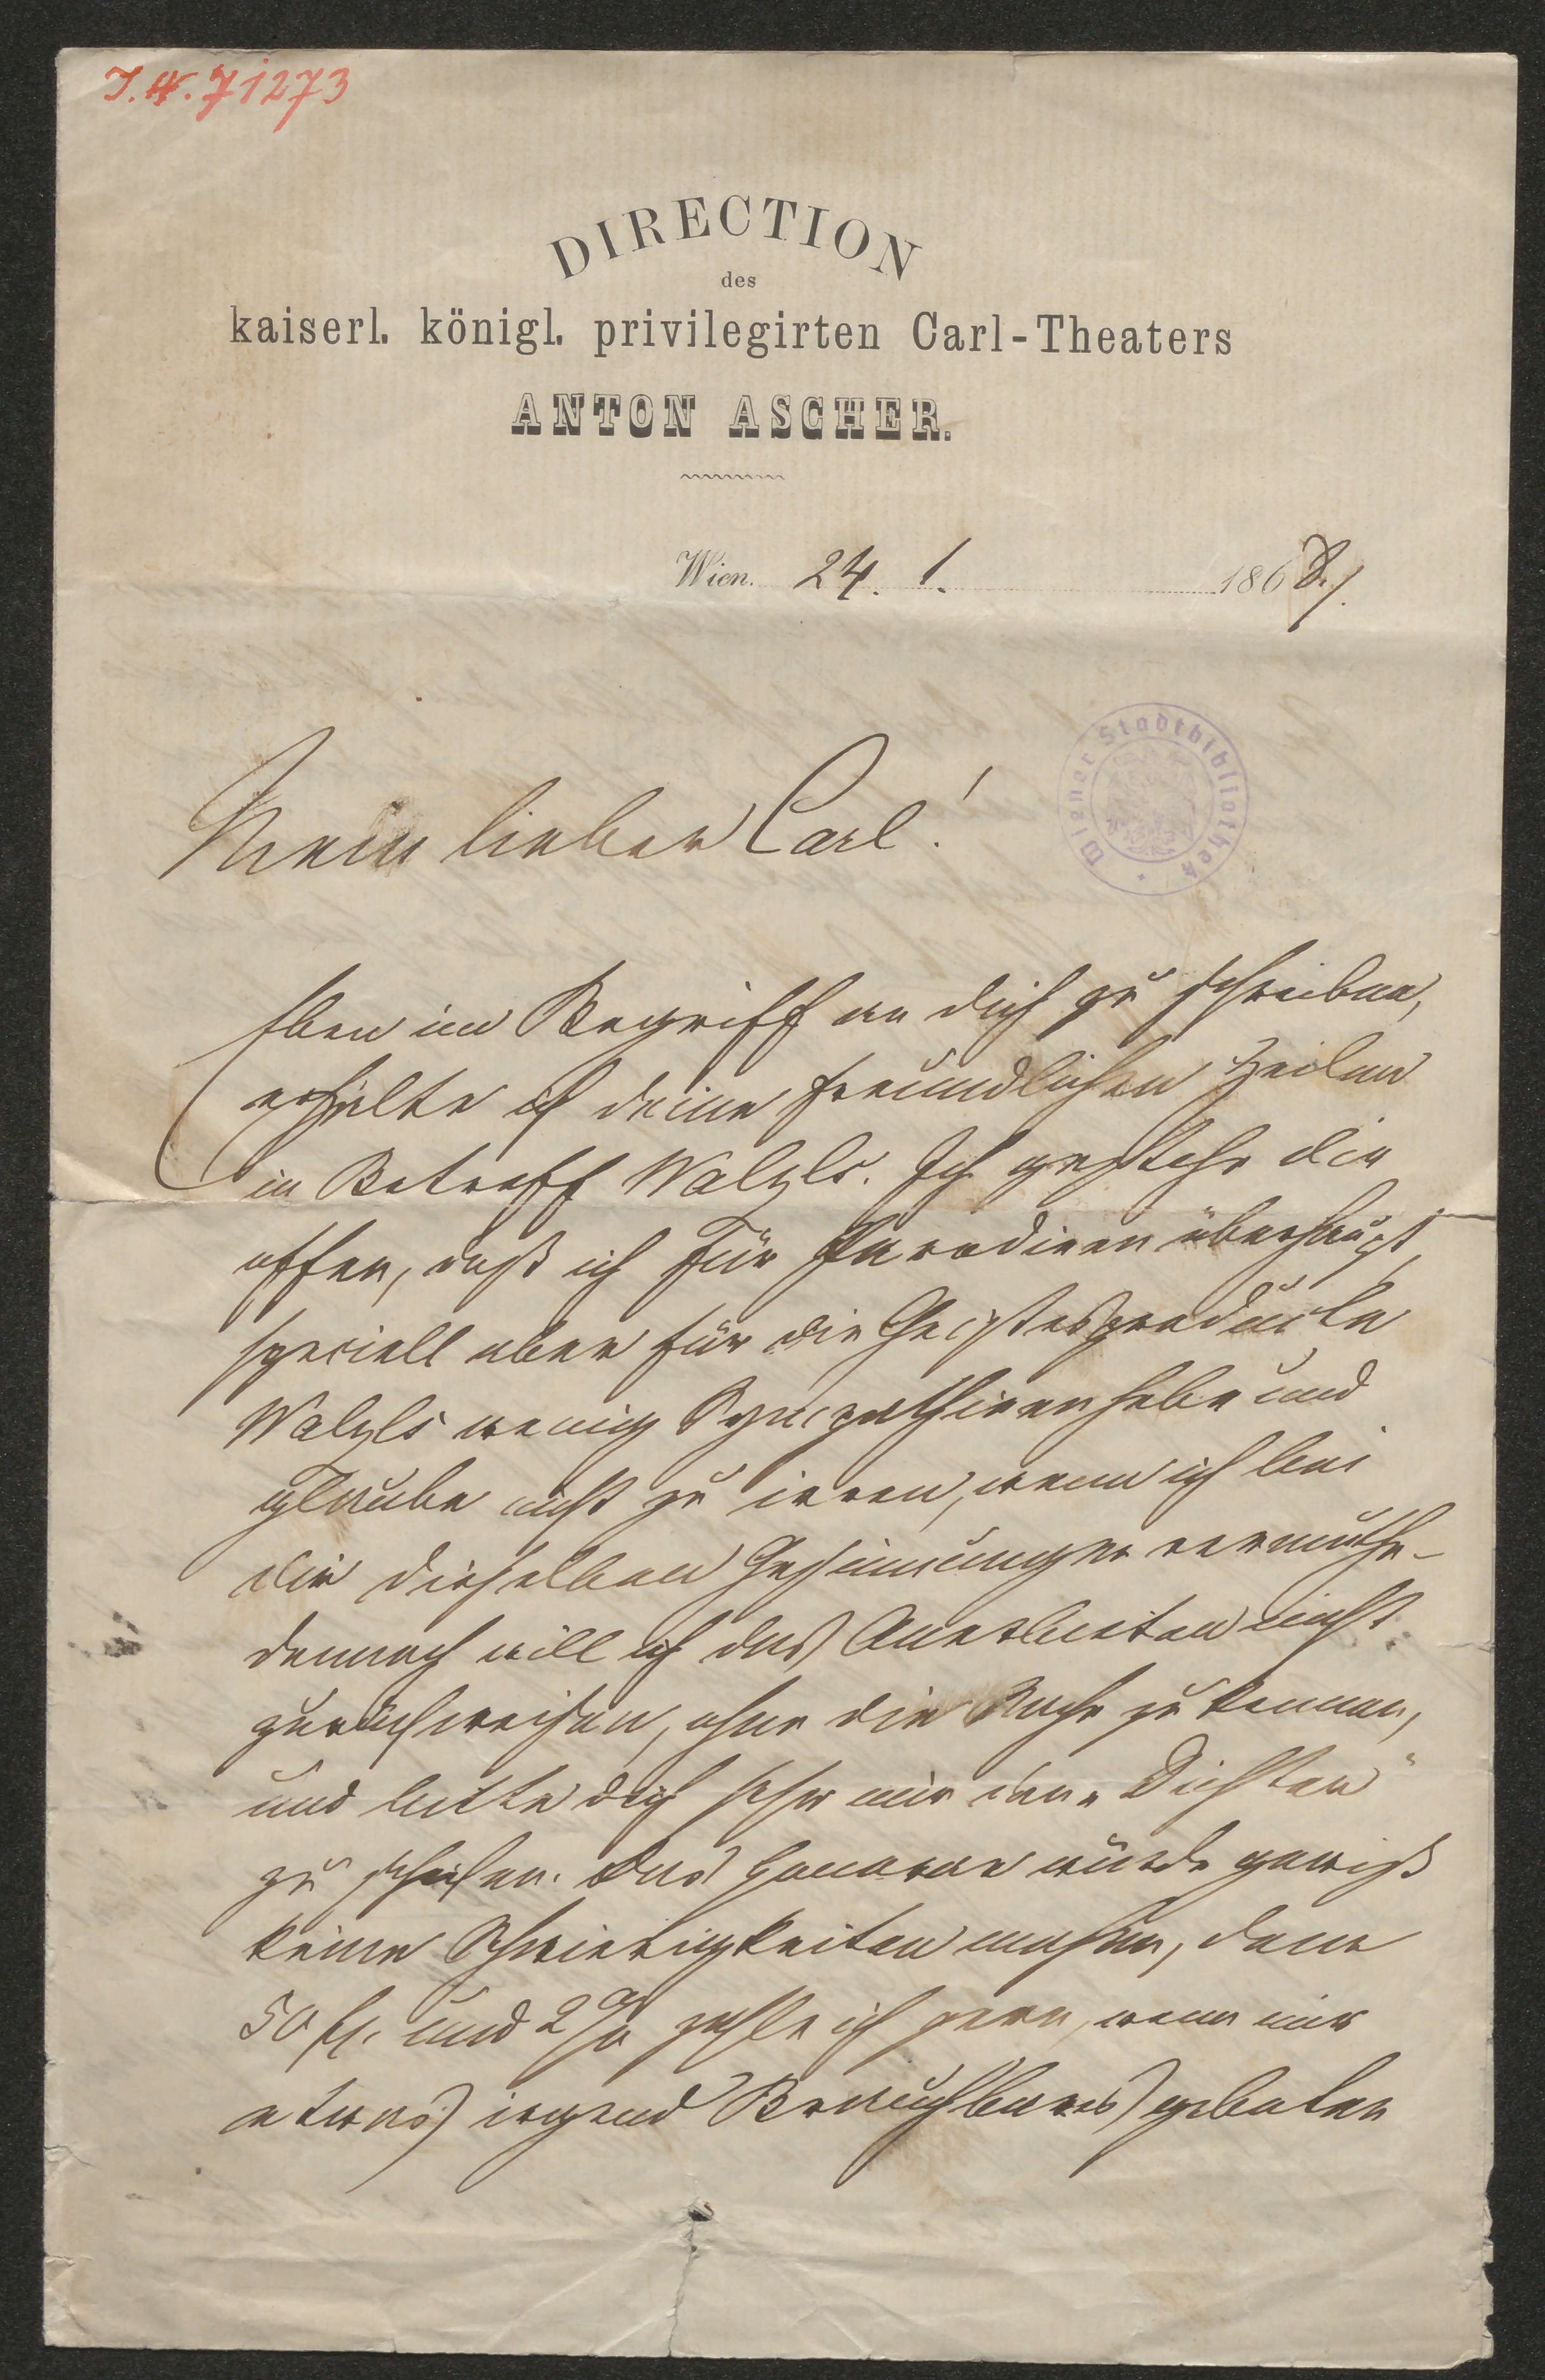 I.N. 71273
DIRECTION
des
kaiserl. königl. privilegirten Carl-Theaters
ANTON ASCHER.
Wien. 24. 1. 1868.
Wiener Stadtbibliothek
Mein lieber Carl!
Eben im Begriff an dich zu schreiben,
erhalte ich deine freundlichen Zeilen
in Betreff Walzls. Ich gestehe dir
offen, daß ich für Parodieen überhaupt,
speciell aber für die Geistesproducte
Walzls wenig Sympathieen habe und
glaube nicht zu irren, wenn ich bei
dir dieselben Gesinnungen vermuthe –
dennoch will ich das Anerbieten nicht
zurückweisen, ohne die Sache zu kennen,
und bitte dich sehr mir den „Dichter“
zu schicken. Das Honorar würde gewiß
keine Schwierigkeiten machen, denn
50 fl. und 2% zahle ich gern, wenn mir
etwas irgend Brauchbares geboten